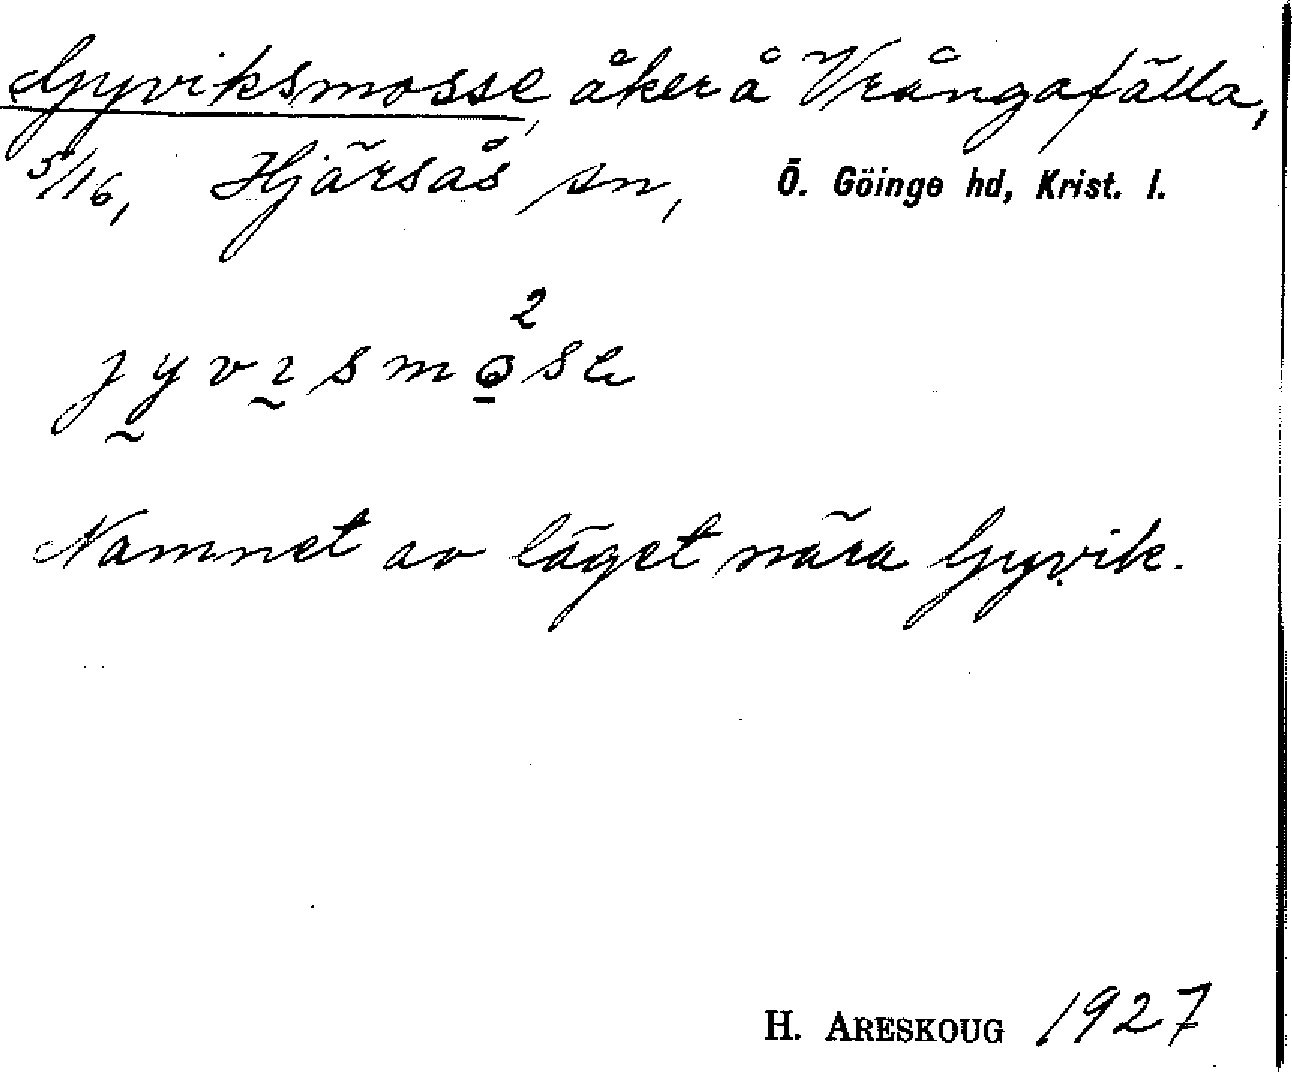 Gyviksmosse, åker å Vrångafälla,
5/16, Hjärsås sn, Ö. Göinge hd, Krist. l.
Namnet av läget nära Gyvik.
H. ARESKOUG 1927